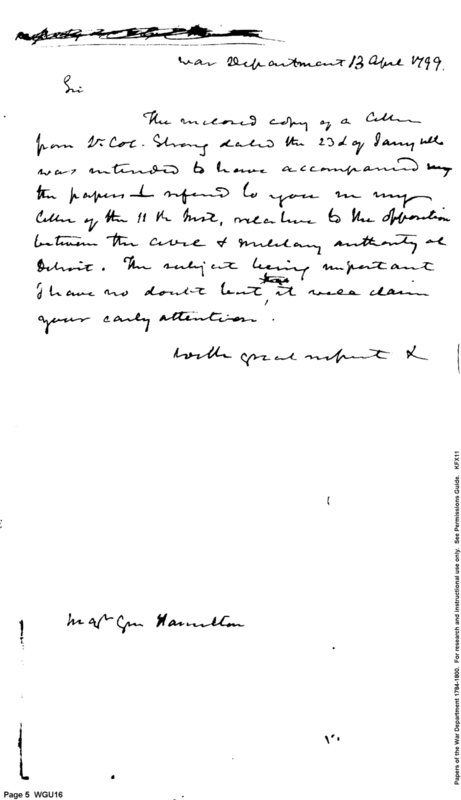 War Department 13 April 1799.
Sir
The enclosed copy of a Letter
from Lt Col. Strong dated the 23d of Jany ulto
was intended to have accompanied
the papers I referred to you in my
Letter of the 11th Inst, relative to the opposition
between the civil & military authority at
Detroit. The subject being important
I have no doubt but it will claim
your early attention.
With great respect &
Majr Gen Hamilton
Page 5 WGU16
Papers of the War Department 1784-1800. For research and instructional use only. See Permissions Guide. KFX11